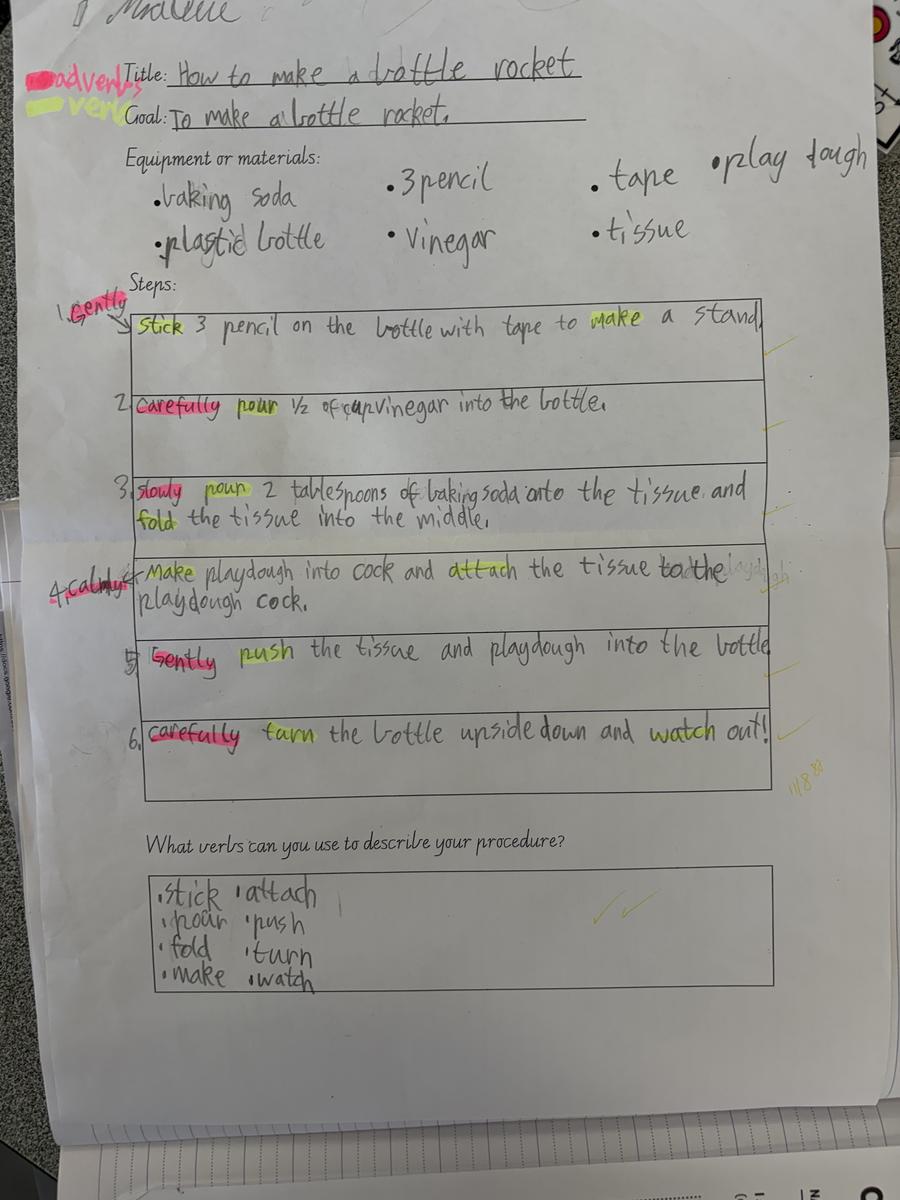 adverbs Title: How to make a bottle rocket
verbs Goal: To make a bottle rocket.
Equipment or materials:
•baking soda •3 pencil •tape •play dough
•plastic bottle •vinegar •tissue
Steps:
1. Gently stick 3 pencil on the bottle with tape to make a stand.
2. carefully pour 1/2 of cup vinegar into the bottle.
3. slowly pour 2 tablespoons of baking soda onto the tissue and
fold the tissue into the middle.
4. calmly Make playdough into cock and attach the tissue to the
playdough cock.
5. Gently push the tissue and playdough into the bottle
6. carefully turn the bottle upside down and watch out!
11/8
What verbs can you use to describe your procedure?
•stick •attach
•pour •push
•fold •turn
•make •watch